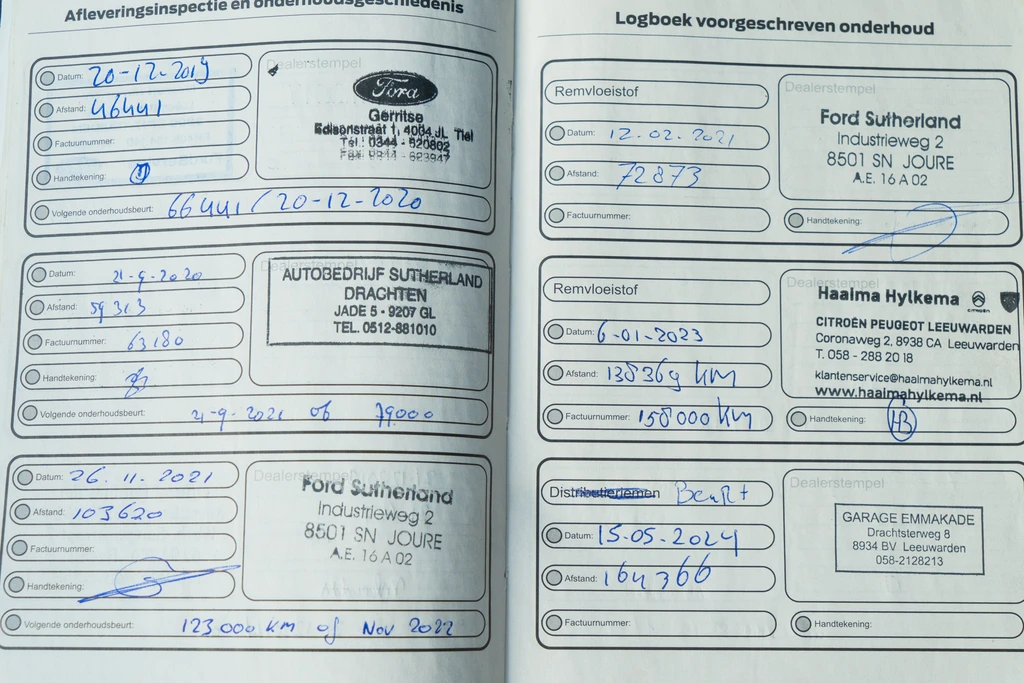 Afleveringsinspectie en onderhoudsgeschiedenis
Datum: 20-12-2019
Afstand: 46441
Factuurnummer:
Handtekening:
Volgende onderhoudsbeurt: 66441 / 20-12-2020
Dealerstempel
Ford
Gerritse
Edisonstraat 1, 4004 JL Tiel
Tel.: 0344 - 620802
Datum: 21-9-2020
Afstand: 59313
Factuurnummer: 63180
Handtekening:
Volgende onderhoudsbeurt: 21-9-2021 of 79000
Dealerstempel
AUTOBEDRIJF SUTHERLAND
DRACHTEN
JADE 5 - 9207 GL
TEL. 0512-881010
Datum: 26.11.2021
Afstand: 103620
Factuurnummer:
Handtekening:
Volgende onderhoudsbeurt: 123000 KM of Nov 2022
Dealerstempel
Ford Sutherland
Industrieweg 2
8501 SN JOURE
A.E. 16 A 02
Logboek voorgeschreven onderhoud
Remvloeistof
Datum: 12.02.2021
Afstand: 72873
Factuurnummer:
Dealerstempel
Ford Sutherland
Industrieweg 2
8501 SN JOURE
A.E. 16 A 02
Handtekening:
Remvloeistof
Datum: 6-01-2023
Afstand: 138369 KM
Factuurnummer: 158000 KM
Dealerstempel
Haaima Hylkema
CITROËN
CITROËN PEUGEOT LEEUWARDEN
Coronaweg 2, 8938 CA Leeuwarden
T. 058 - 288 20 18
klantenservice@haaimahylkema.nl
www.haaimahylkema.nl
Handtekening: HB
Distributieriemen Beurt
Datum: 15-05-2024
Afstand: 164366
Factuurnummer:
Dealerstempel
GARAGE EMMAKADE
Drachtsterweg 8
8934 BV Leeuwarden
058-2128213
Handtekening: